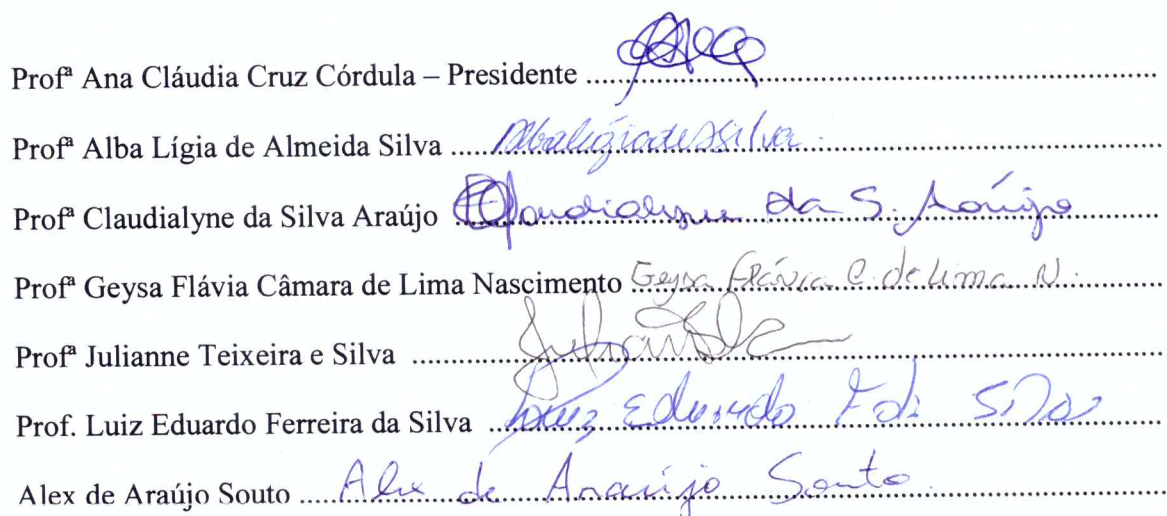 Profª Ana Cláudia Cruz Córdula – Presidente ..........
Profª Alba Lígia de Almeida Silva .......... Albalígiade Silva.
Profª Claudialyne da Silva Araújo .......... Claudialyne da S. Araújo
Profª Geysa Flávia Câmara de Lima Nascimento Geysa Flávia C. de Lima N.
Profª Julianne Teixeira e Silva ..........
Prof. Luiz Eduardo Ferreira da Silva .......... Luiz Eduardo F. da Silva
Alex de Araújo Souto .......... Alex de Araújo Souto